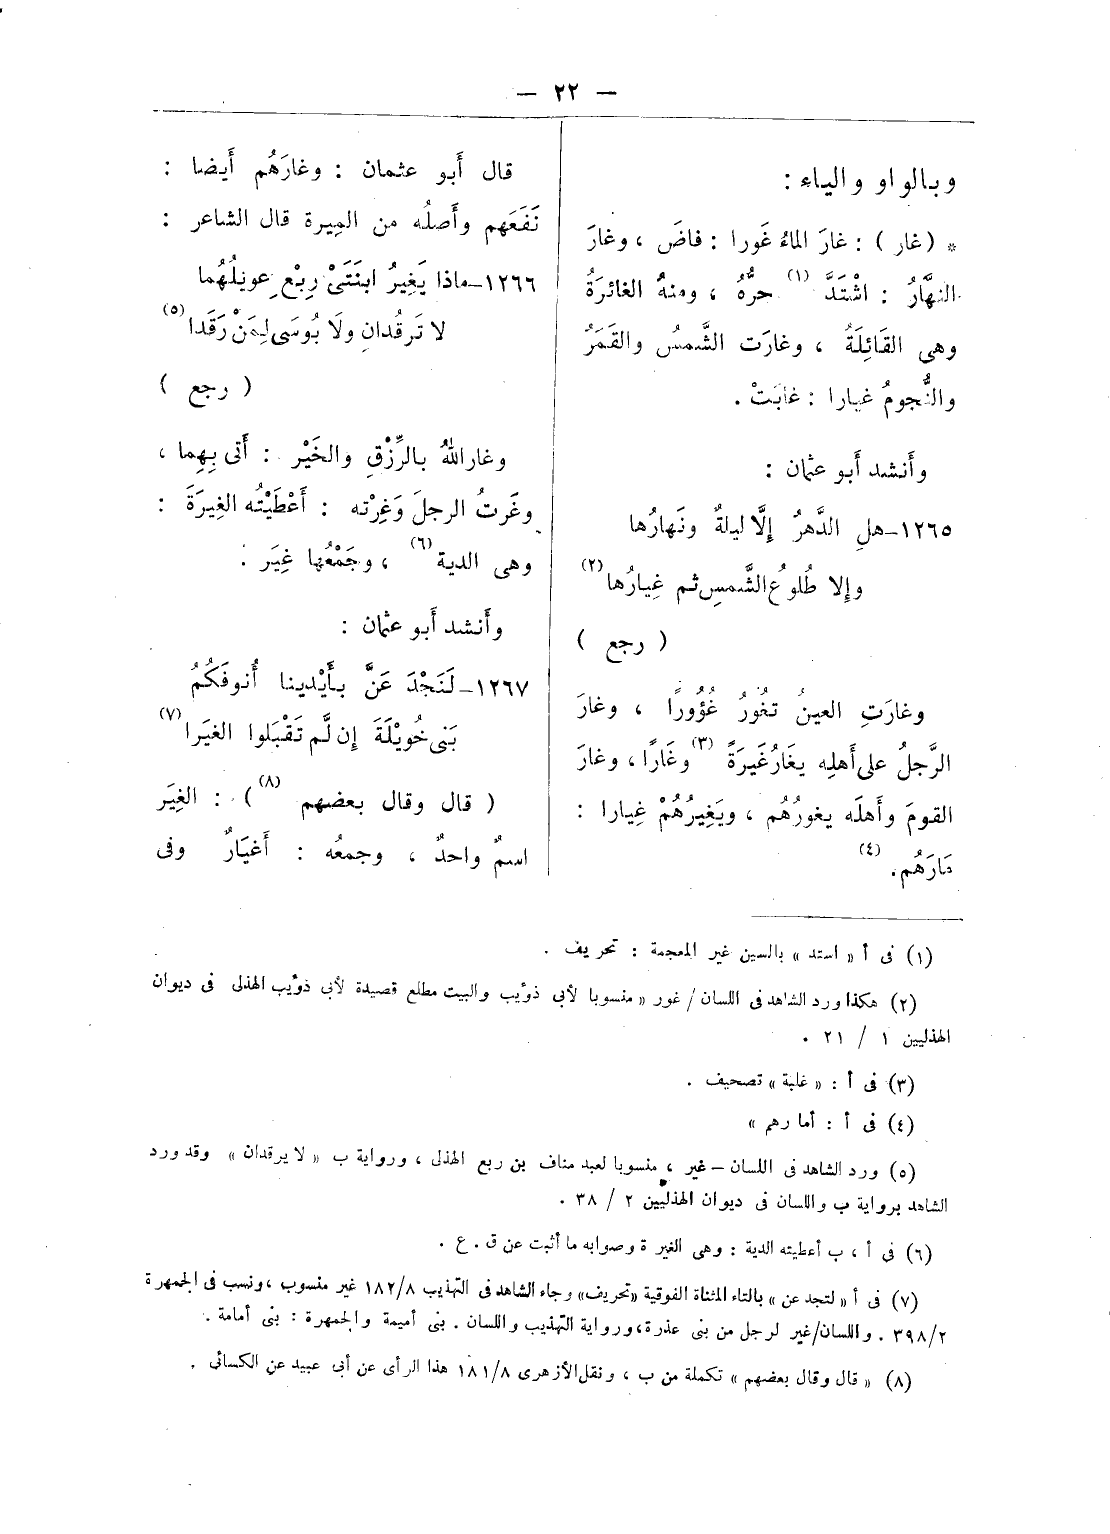 — ٢٢ —
وبالواو والياء :
* (غار) : غارَ الماءُ غَورا : فاضَ ، وغارَ
النهَّارُ : اشْتَدَّ (١) حرُّهُ ، ومنهُ الغائرَةُ
وهى القَائِلَةُ ، وغارَت الشَّمسُ والقَمَرُ
والنُّجومُ غيارا : غابَتْ .
وأَنشد أَبو عثمان :
١٢٦٥ـ هلِ الدَّهرُ إِلَّا ليلةٌ ونَهارُها
وإِلا طُلوعُ الشَّمسِ ثم غِيارُها (٢)
( رجع )
وغارَتِ العينُ تغُورُ غُؤُورًا ، وغارَ
الرَّجلُ على أَهلِه يغَارُ غَيرَةً (٣) وغَارًا ، وغارَ
القومَ وأَهلَه يغورُهُم ، ويَغِيرُهُمْ غِيارا :
مَارَهُم . (٤)
قال أَبو عثمان : وغارَهُم أَيضا :
نَفَعَهم وأَصلُه من المِيرة قال الشاعر :
١٢٦٦ـ ماذا يَغِيرُ ابنَتَىْ رِبْعٍ عويلُهُما
لا تَرقُدانِ ولَا بُوسَى لِمَنْ رَقَدا (٥)
( رجع )
وغارَ اللهُ بالرِّزْقِ والخَيْر : أَتى بِهِما ،
وغَرتُ الرجلَ وَغِرْته : أَعْطَيْتُه الغِيرَةَ :
وهى الدية (٦) ، وجَمْعُها غِيَر .
وأَنشد أَبو عثمان :
١٢٦٧ـ لَنَجْدَ عَنَّ بأَيْدينا أُنوفَكُمُ
بَنى خُويْلَةَ إِن لَّم تَقْبَلوا الغيَرا (٧)
( قال وقال بعضهم (٨) ) : الغِيَر
اسمٌ واحدٌ ، وجمعُه : أَغيَارٌ وفى
(١) فى أ « استد » بالسين غير المعجمة : تحريف .
(٢) هكذا ورد الشاهد فى اللسان / غور « منسوبا لأبى ذؤيب والبيت مطلع قصيدة لأبى ذؤيب الهذلى فى ديوان
الهذليين ١ / ٢١ .
(٣) فى أ : « غلبة » تصحيف .
(٤) فى أ : أما رهم »
(٥) ورد الشاهد فى اللسان – غير ، منسوبا لعبد مناف بن ربع الهذلى ، ورواية ب « لا يرقدان » وقد ورد
الشاهد برواية ب واللسان فى ديوان الهذليين ٢ / ٣٨ .
(٦) فى أ ، ب أعطيته الدية : وهى الغيرة وصوابه ما أثبت عن ق . ع .
(٧) فى أ « لتجد عن » بالتاء المثناة الفوقية «تحريف» وجاء الشاهد فى التهذيب ١٨٢/٨ غير منسوب ، ونسب فى الجمهرة
٣٩٨/٢ . واللسان/غير لرجل من بنى عذرة ، ورواية التهذيب واللسان . بنى أميمة والجمهرة : بنى أمامة .
(٨) « قال وقال بعضهم » تكملة من ب ، ونقل الأزهرى ١٨١/٨ هذا الرأى عن أبى عبيد عن الكسائى .